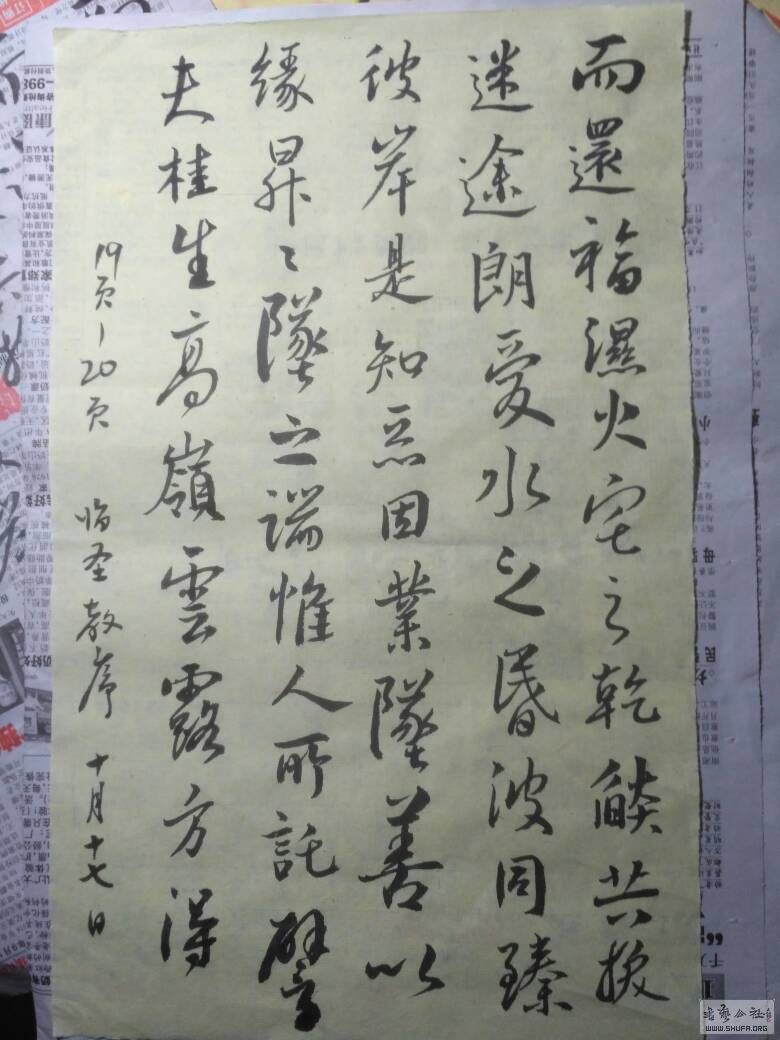 而還福濕火宅之乾燄共拔
迷途朗愛水之昬波同臻
彼岸是知惡因業墜善以
緣昇々墜之端惟人所託譬
夫桂生高嶺雲露方得
19页-20页 临圣教序 十月十七日
书艺公社
WWW.SHUFA.ORG